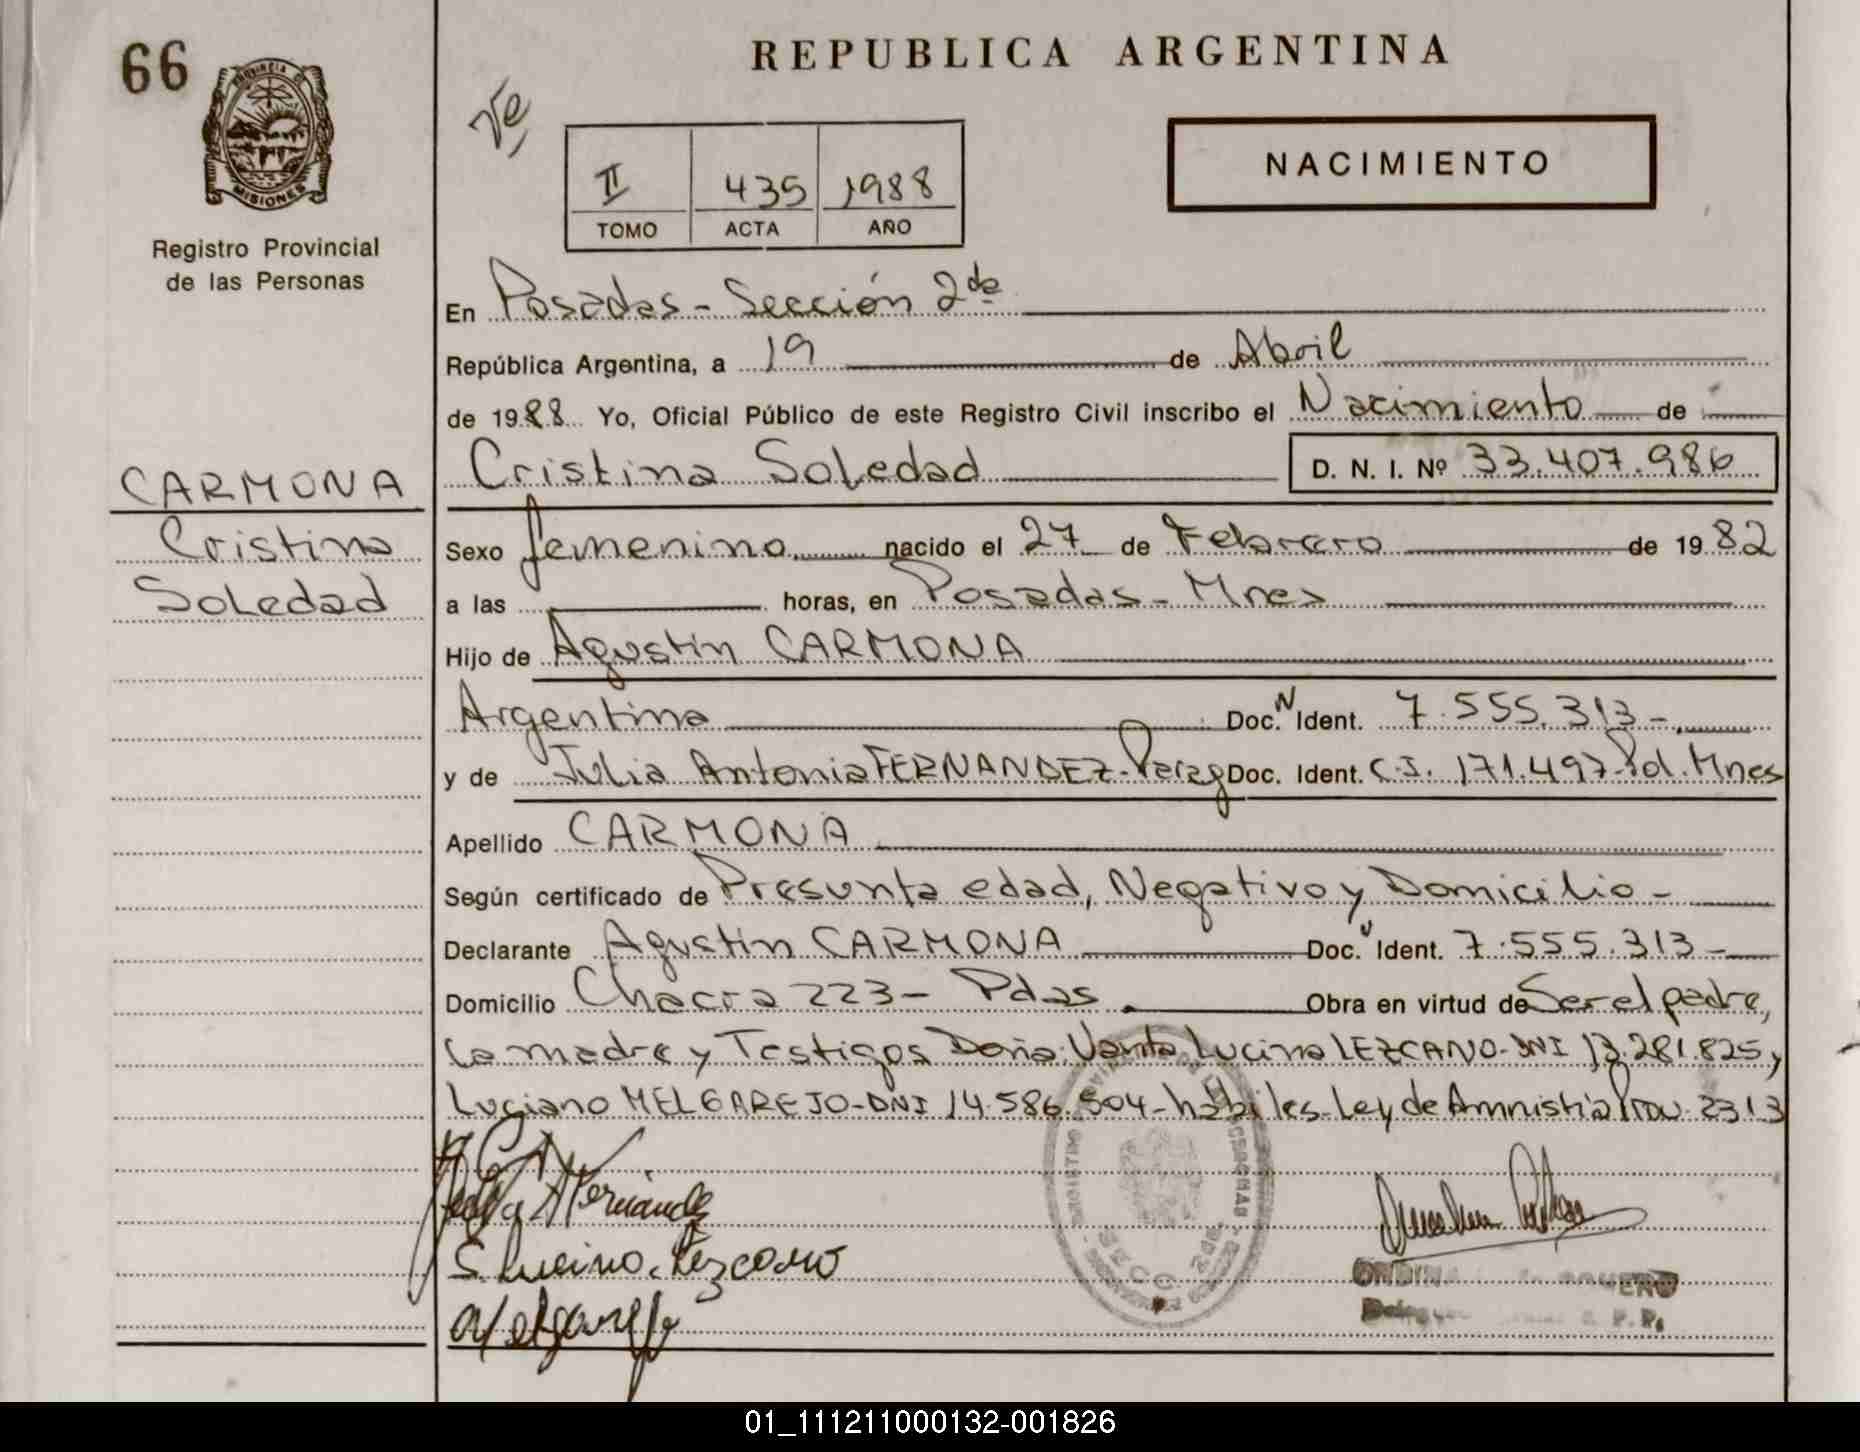 66
REPUBLICA ARGENTINA
PROVINCIA DE
MISIONES
Registro Provincial
de las Personas
II 435 1988
TOMO ACTA AÑO
NACIMIENTO
En Posadas - Sección 2da
República Argentina, a 19 de Abril
de 1988 Yo, Oficial Público de este Registro Civil inscribo el Nacimiento de
CARMONA
Cristina
Soledad
Cristina Soledad D. N. I. Nº 33.407.986
Sexo femenino nacido el 27 de Febrero de 1982
a las horas, en Posadas - Mnes
Hijo de Agustín CARMONA
Argentina Doc. N Ident. 7.555.313-
y de Julia Antonia FERNANDEZ - Parag Doc. Ident. C.I. 171.497 - Pol. Mnes
Apellido CARMONA
Según certificado de Presunta edad, Negativo y Domicilio -
Declarante Agustín CARMONA Doc. Ident. 7.555.313-
Domicilio Chacra 223 - Pdas Obra en virtud de Ser el padre,
la madre y Testigos Doña Lucina LEZCANO - DNI 13.281.825 y
Luciano MELGAREJO - DNI 14.586.504 - hábiles - Ley de Amnistía Prov. 2313
Fernández
Lucina Lezcano
Melgarejo
01_111211000132-001826